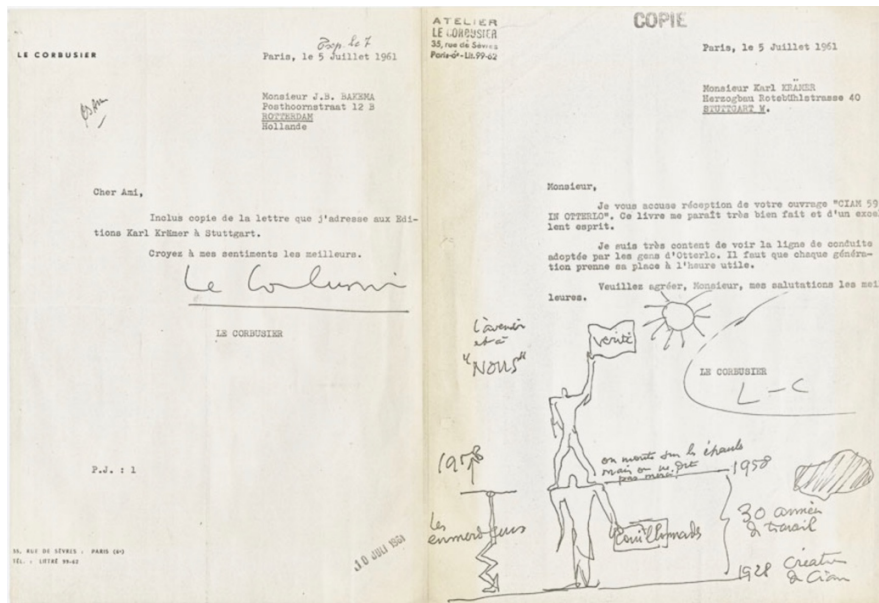 LE CORBUSIER
Paris, le 5 Juillet 1961
Monsieur J.B. BAKEMA
Posthoornstraat 12 B
ROTTERDAM
Hollande
Cher Ami,
Inclus copie de la lettre que j'adresse aux Edi-
tions Karl Krämer à Stuttgart.
Croyez à mes sentiments les meilleurs.
Le Corbusier
LE CORBUSIER
P.J. : 1
35, RUE DE SÈVRES - PARIS (6e)
TÉL. : LITTRÉ 99-62
10 JULI 1961
ATELIER
LE CORBUSIER
35, rue de Sèvres
Paris-6e-Lit.99-62
COPIE
Paris, le 5 Juillet 1961
Monsieur Karl KRÄMER
Herzogbau Rotebühlstrasse 40
STUTTGART W.
Monsieur,
Je vous accuse réception de votre ouvrage "CIAM 59
IN OTTERLO". Ce livre me paraît très bien fait et d'un excel
lent esprit.
Je suis très content de voir la ligne de conduite
adoptée par les gens d'Otterlo. Il faut que chaque généra-
tion prenne sa place à l'heure utile.
Veuillez agréer, Monsieur, mes salutations les meil
leures.
l'avenir
est à
"NOUS"
vérité
LE CORBUSIER
L-C
1958
on monte sur les épaules
mais on ne dit
pas merci
1958
les
emmerdeurs
30 années
de travail
1928 Création
de Ciam